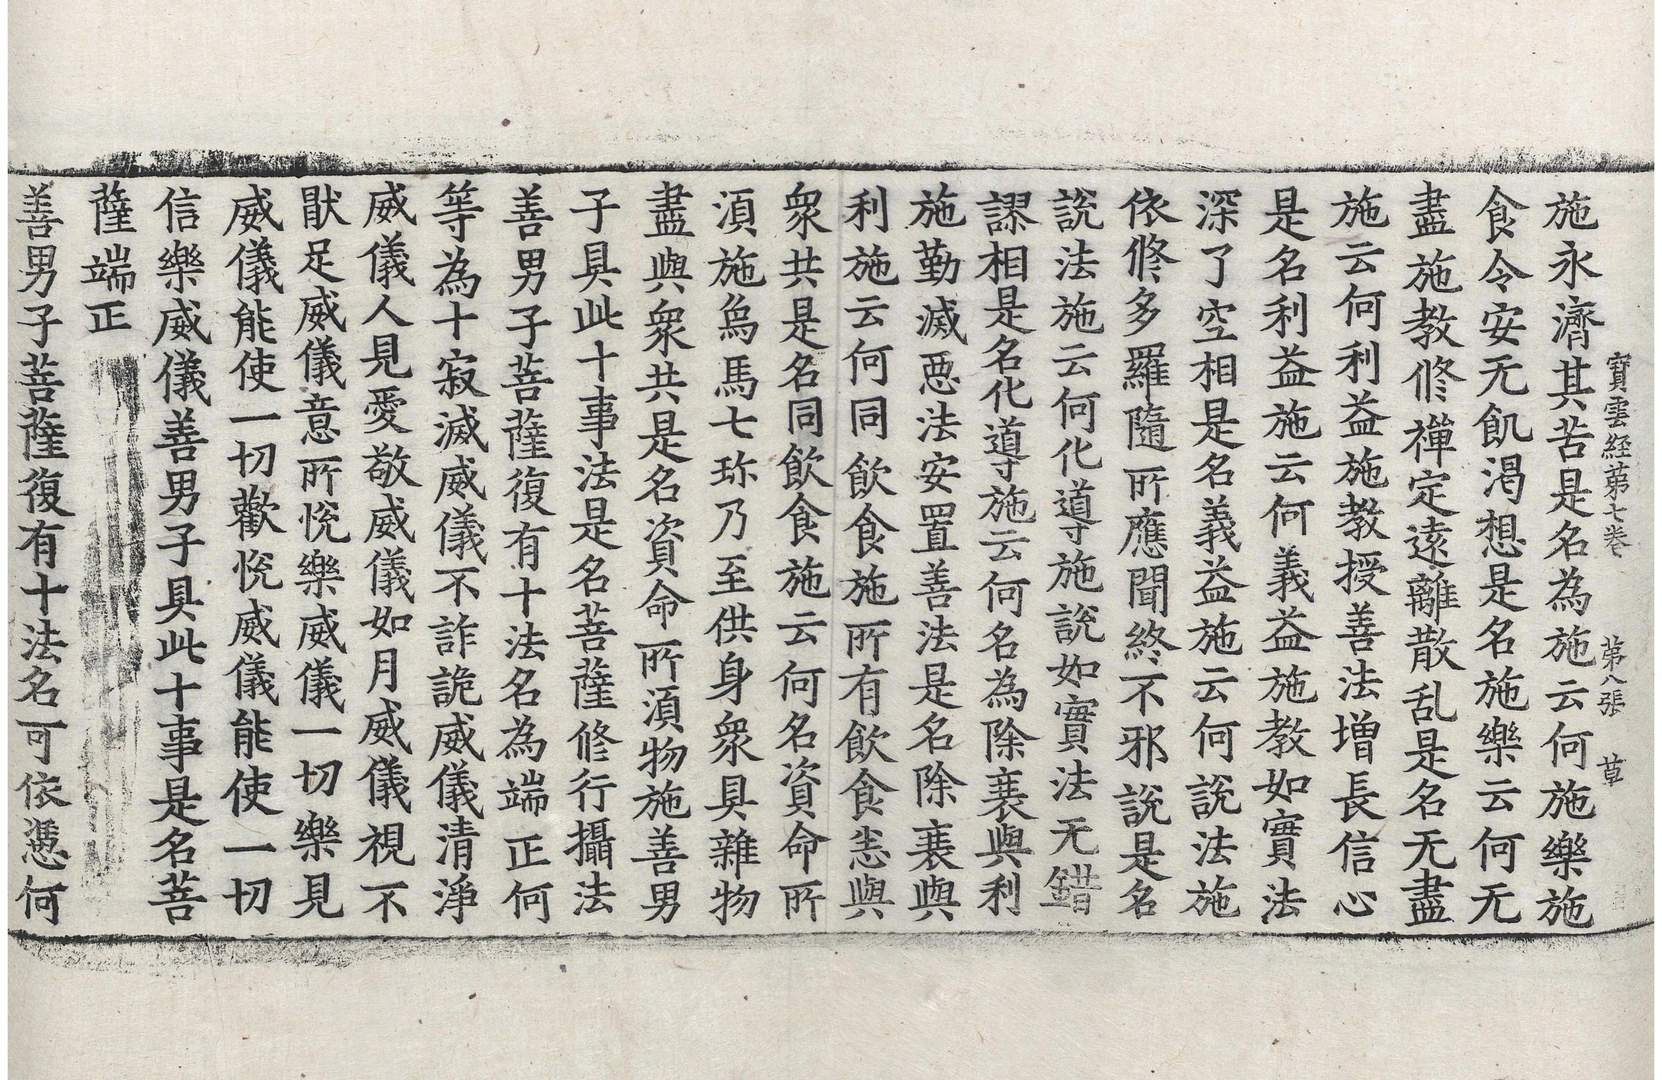 寶雲経苐七卷 苐八張 草
施永濟其苦是名為施云何施樂施
食令安无飢渇想是名施樂云何无
盡施教修禪定遠離散乱是名无盡
施云何利益施教授善法增長信心
是名利益施云何義益施教如實法
深了空相是名義益施云何說法施
依修多羅隨所應聞終不邪說是名
說法施云何化導施說如實法无錯
謬相是名化導施云何名為除衰與利
施勤滅惡法安置善法是名除衰與
利施云何同飲食施所有飲食悉與
衆共是名同飲食施云何名資命所
湏施烏馬七珎乃至供身衆具雜物
盡與衆共是名資命所湏物施善男
子具此十事法是名菩薩修行攝法
善男子菩薩復有十法名為端正何
等為十寂滅威儀不詐詭威儀清淨
威儀人見愛敬威儀如月威儀視不
猒足威儀意所恱樂威儀一切樂見
威儀能使一切歡恱威儀能使一切
信樂威儀善男子具此十事是名菩
薩端正
善男子菩薩復有十法名可依憑何